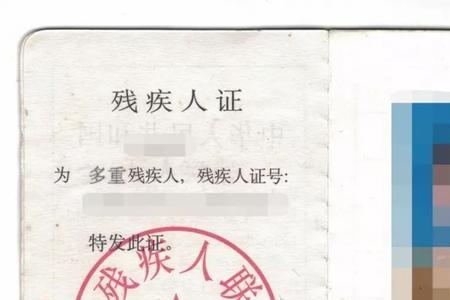 残疾人证
为 多重残疾人，残疾人证号：
特发此证。
残疾人联